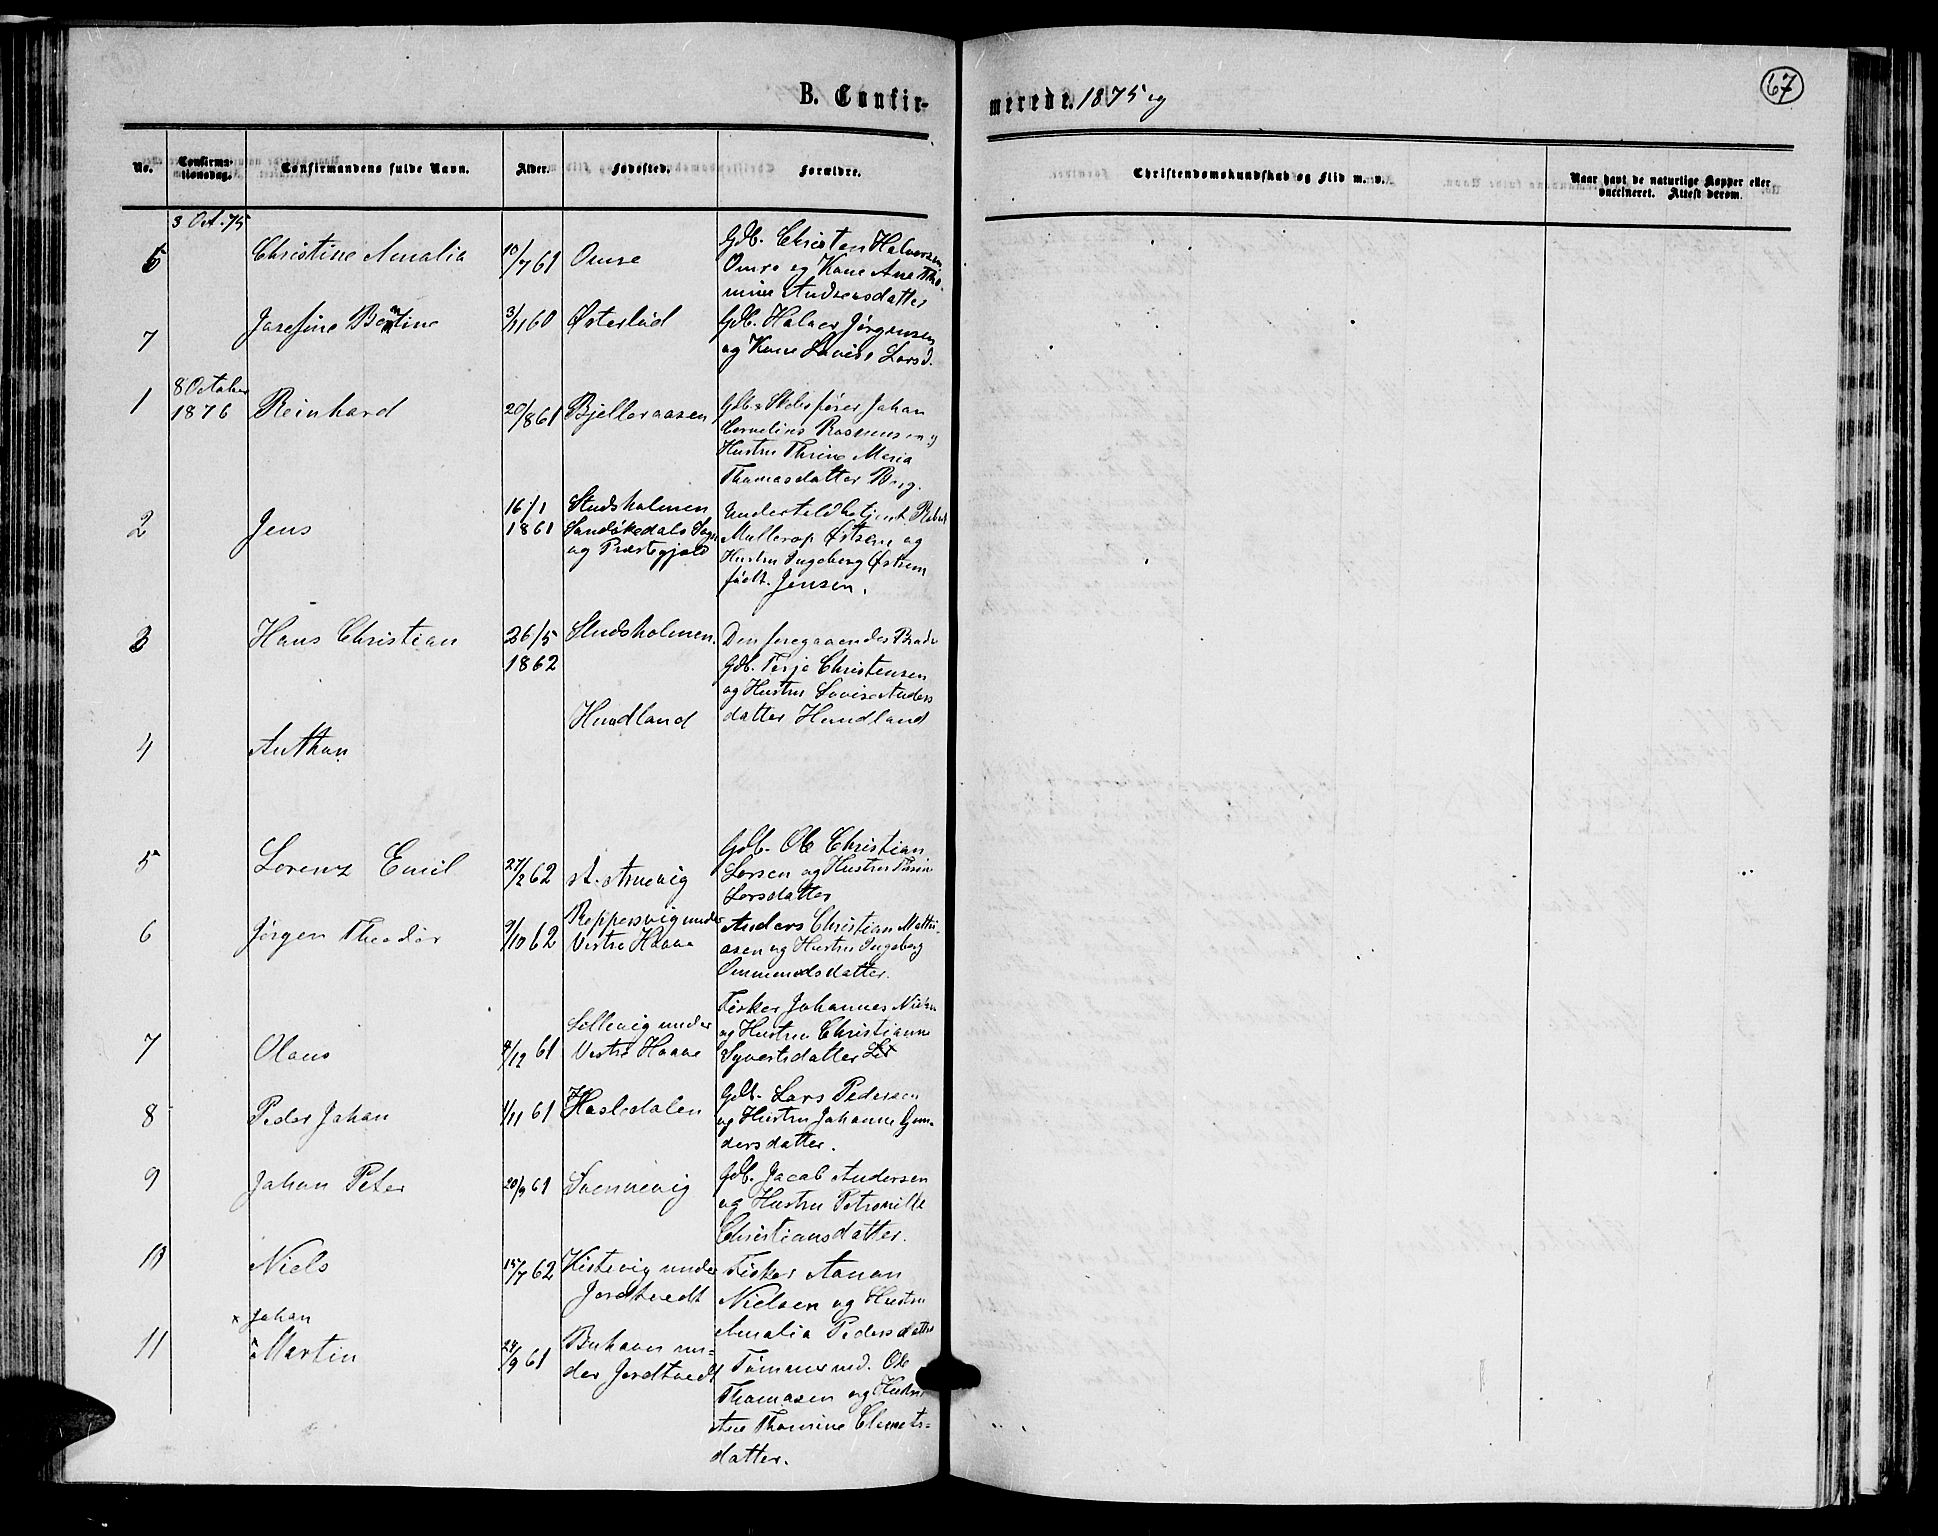 67
B. Confir- merede. 1875 og
No. Confirma-tionsdag. Confirmandens fulde Navn. Alder. Fødested. Forældre. Christendomskundskab og Flid m. v. Naar havt de naturlige Kopper eller vaccineret. Attest derom.
3 Oct. 75
6 Christine Amalia 10/7 61 Omre Gdb. Christen Halvorsen
Omre og Kone Ane Tho-
mine Andreasdatter
7 Josefine Bentine 3/11 60 Østerlud Gdb. Halvor Jørgensen
og Kone Lovise Larsd.
1 8 October
1876 Reinhard 20/8 61 Bjelleraasen Gdb. Skibsfører Johan
Cornelius Rasmussen og
Hustru Thrine Maria
Thomasdatter Berg.
2 Jens 16/1
1861 Studsholmen
Sandøkedals Sogn
og Præstegjeld Undertoldbetjent
Mullerop Østrem og
Hustru Ingeborg Østrem
født. Jensen.
3 Hans Christian 26/5
1862 Studsholmen. Den foregaaendes Broder
4 Anthon Hundland Gdb. Terje Christensen
og Hustru Lovise Anders
datter Hundland
5 Lorenz Emil 27/2 62 st. Arnevig Gdb. Ole Christian
Larsen og Hustru
Larsdatter
6 Jørgen Theodor 9/10 62 Reppersvig under
Vestre Haave Anders Christian Mathi-
asen og Hustru Ingeborg
Ommundsdatter.
7 Olaus 4/12 61 Sellevig under
Vestre Haave Fisker Johannes Nielsen
og Hustru Christianne
Syvertsdatter
8 Peder Johan 1/11 61 Hasledalen Gdb. Lars Pedersen
og Hustru Johanne Gun-
dersdatter.
9 Johan Peter 20/9 61 Svennevig Gdb. Jacob Andersen
og Hustru Petronille
Christiansdatter.
10 Niels 15/7 62 Kistevig under
Jordtvedt Fisker Aanon
Nielsen og Hustru
Amalia Pedersdatter
11 × Johan
× Martin 24/9 61 Buhavn un-
der Jordtvedt Tømmermd. Ole
Thomasen og Hustru
Ane Thomine Clemets-
datter.